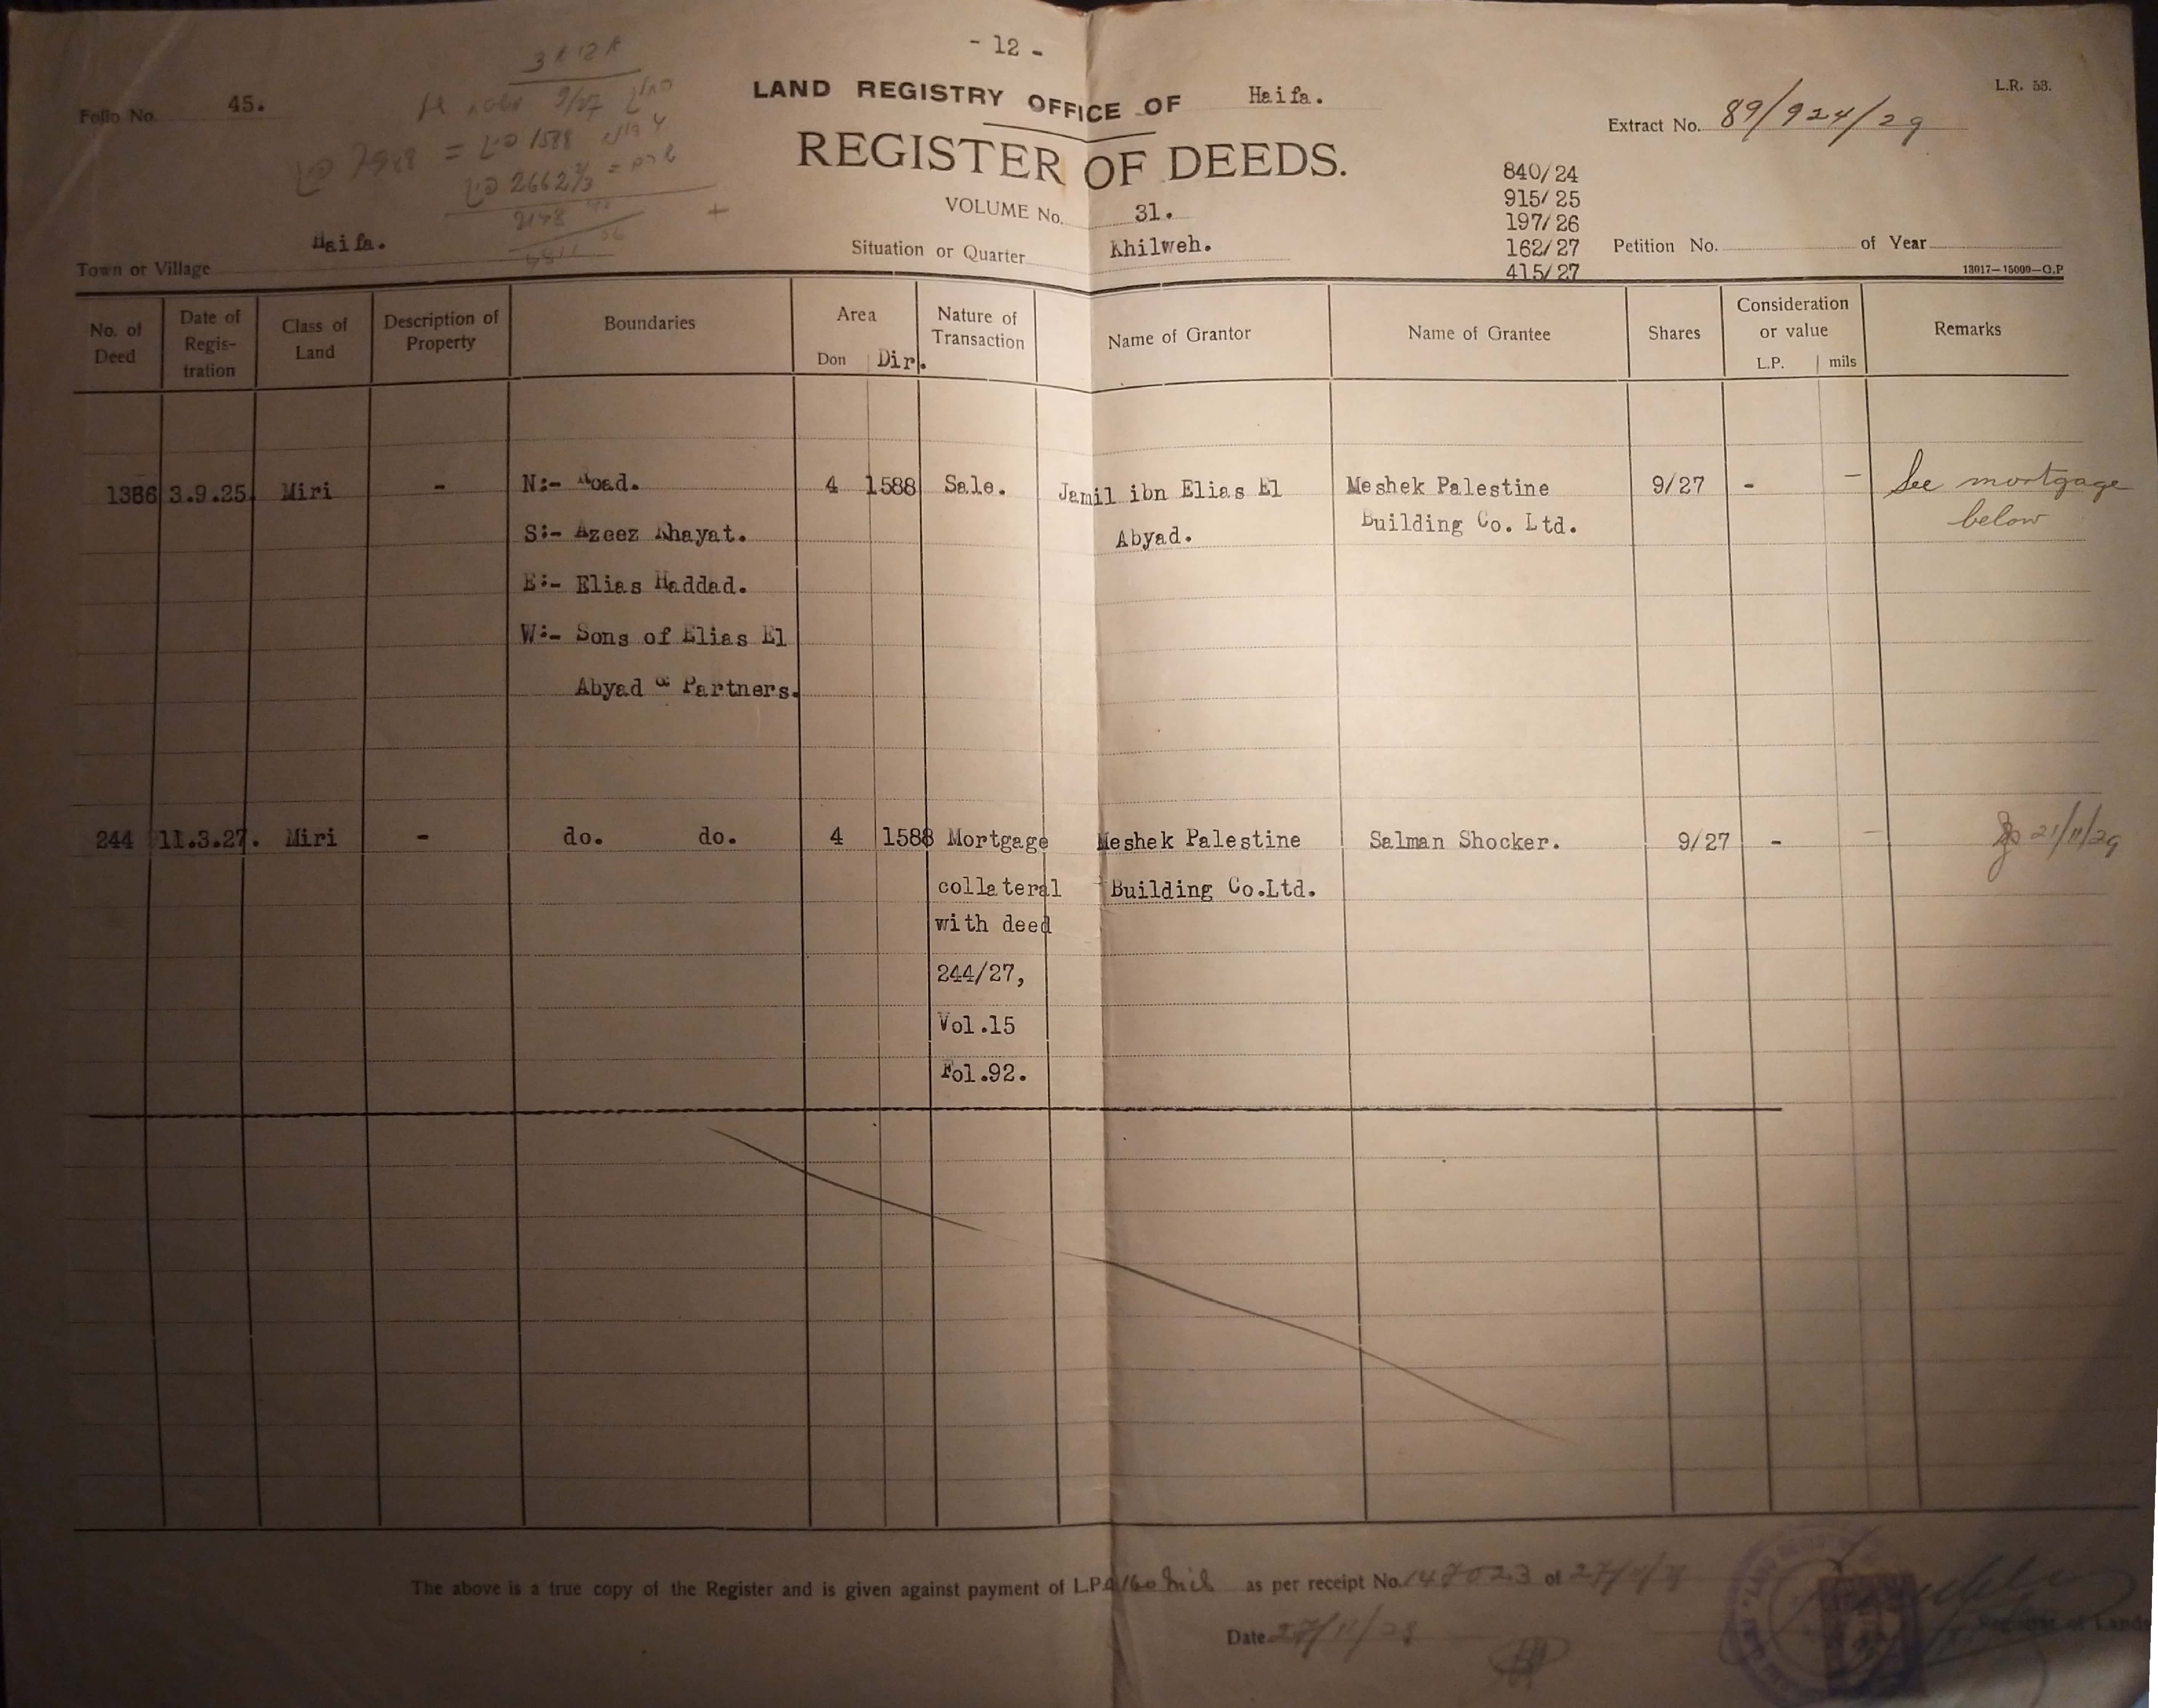 - 12 -
L.R. 53.
Folio No. 45.
LAND REGISTRY OFFICE OF Haifa.
Extract No. 89/924/29
REGISTER OF DEEDS.
840/24
915/25
197/26
162/27
415/27
VOLUME No. 31.
Town or Village Haifa.
Situation or Quarter Khilweh.
Petition No. of Year
13017—15000—G.P
No. of Deed | Date of Regis- tration | Class of Land | Description of Property | Boundaries | Area Don Dir. | Nature of Transaction | Name of Grantor | Name of Grantee | Shares | Consideration or value L.P. mils | Remarks
1386 3.9.25. Miri - N:- Road. 4 1588 Sale. Jamil ibn Elias El Meshek Palestine 9/27 - - See mortgage
S:- Azeez Khayat. Abyad. Building Co. Ltd. below
E:- Elias Haddad.
W:- Sons of Elias El
Abyad & Partners.
244 11.3.27. Miri - do. do. 4 1588 Mortgage Meshek Palestine Salman Shocker. 9/27 - - 21/11/29
collateral Building Co.Ltd.
with deed
244/27,
Vol.15
Fol.92.
The above is a true copy of the Register and is given against payment of L.P. as per receipt No. 147023 of
Date
Registrar of Lands